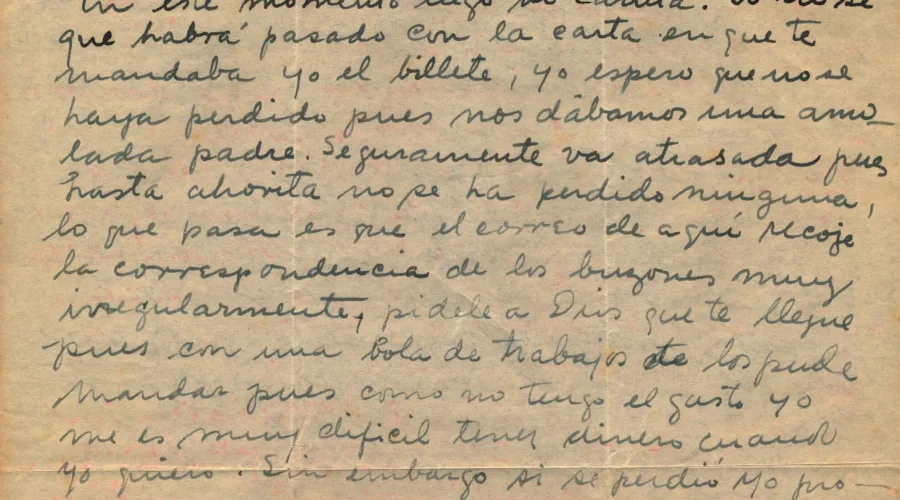 en este momento llego
que habrá pasado con la carta en que te
mandaba yo el billete, yo espero que no se
haya perdido pues nos dábamos una amo-
lada padre. Seguramente va atrasada pues
hasta ahorita no se ha perdido ninguna,
lo que pasa es que el correo de aquí recoje
la correspondencia de los buzones muy
irregularmente, pidele a Dios que te llegue
pues con una bola de trabajos te los pude
mandar pues como no tengo el gasto yo
me es muy dificil tener dinero cuando
yo quiero. Sin embargo si se perdió yo pro-